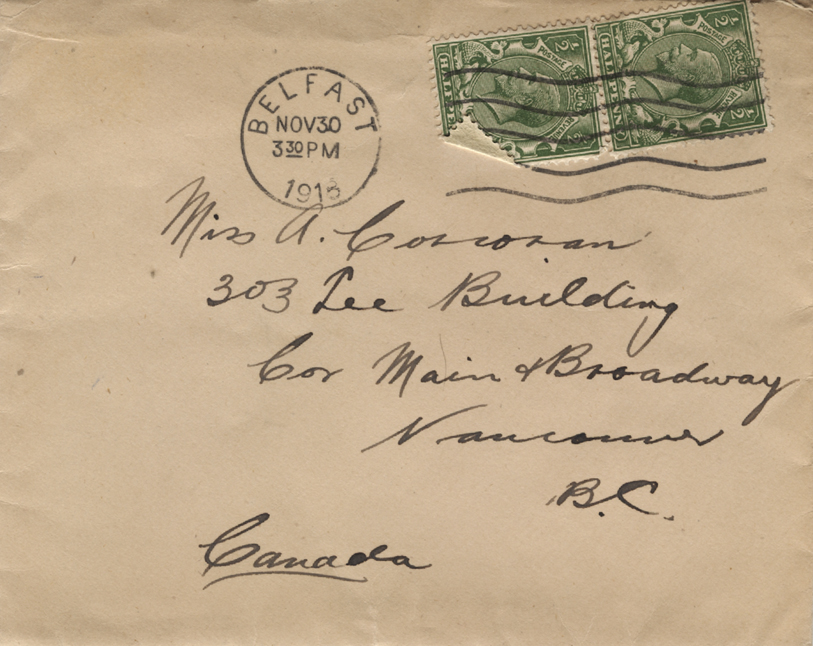 BELFAST
NOV30
3 30 PM
1918
HALFPENNY
POSTAGE
REVENUE
1/2
1/2
Miss A. Corcoran
303 Lee Building
Cor Main & Broadway
Vancouver
B.C.
Canada